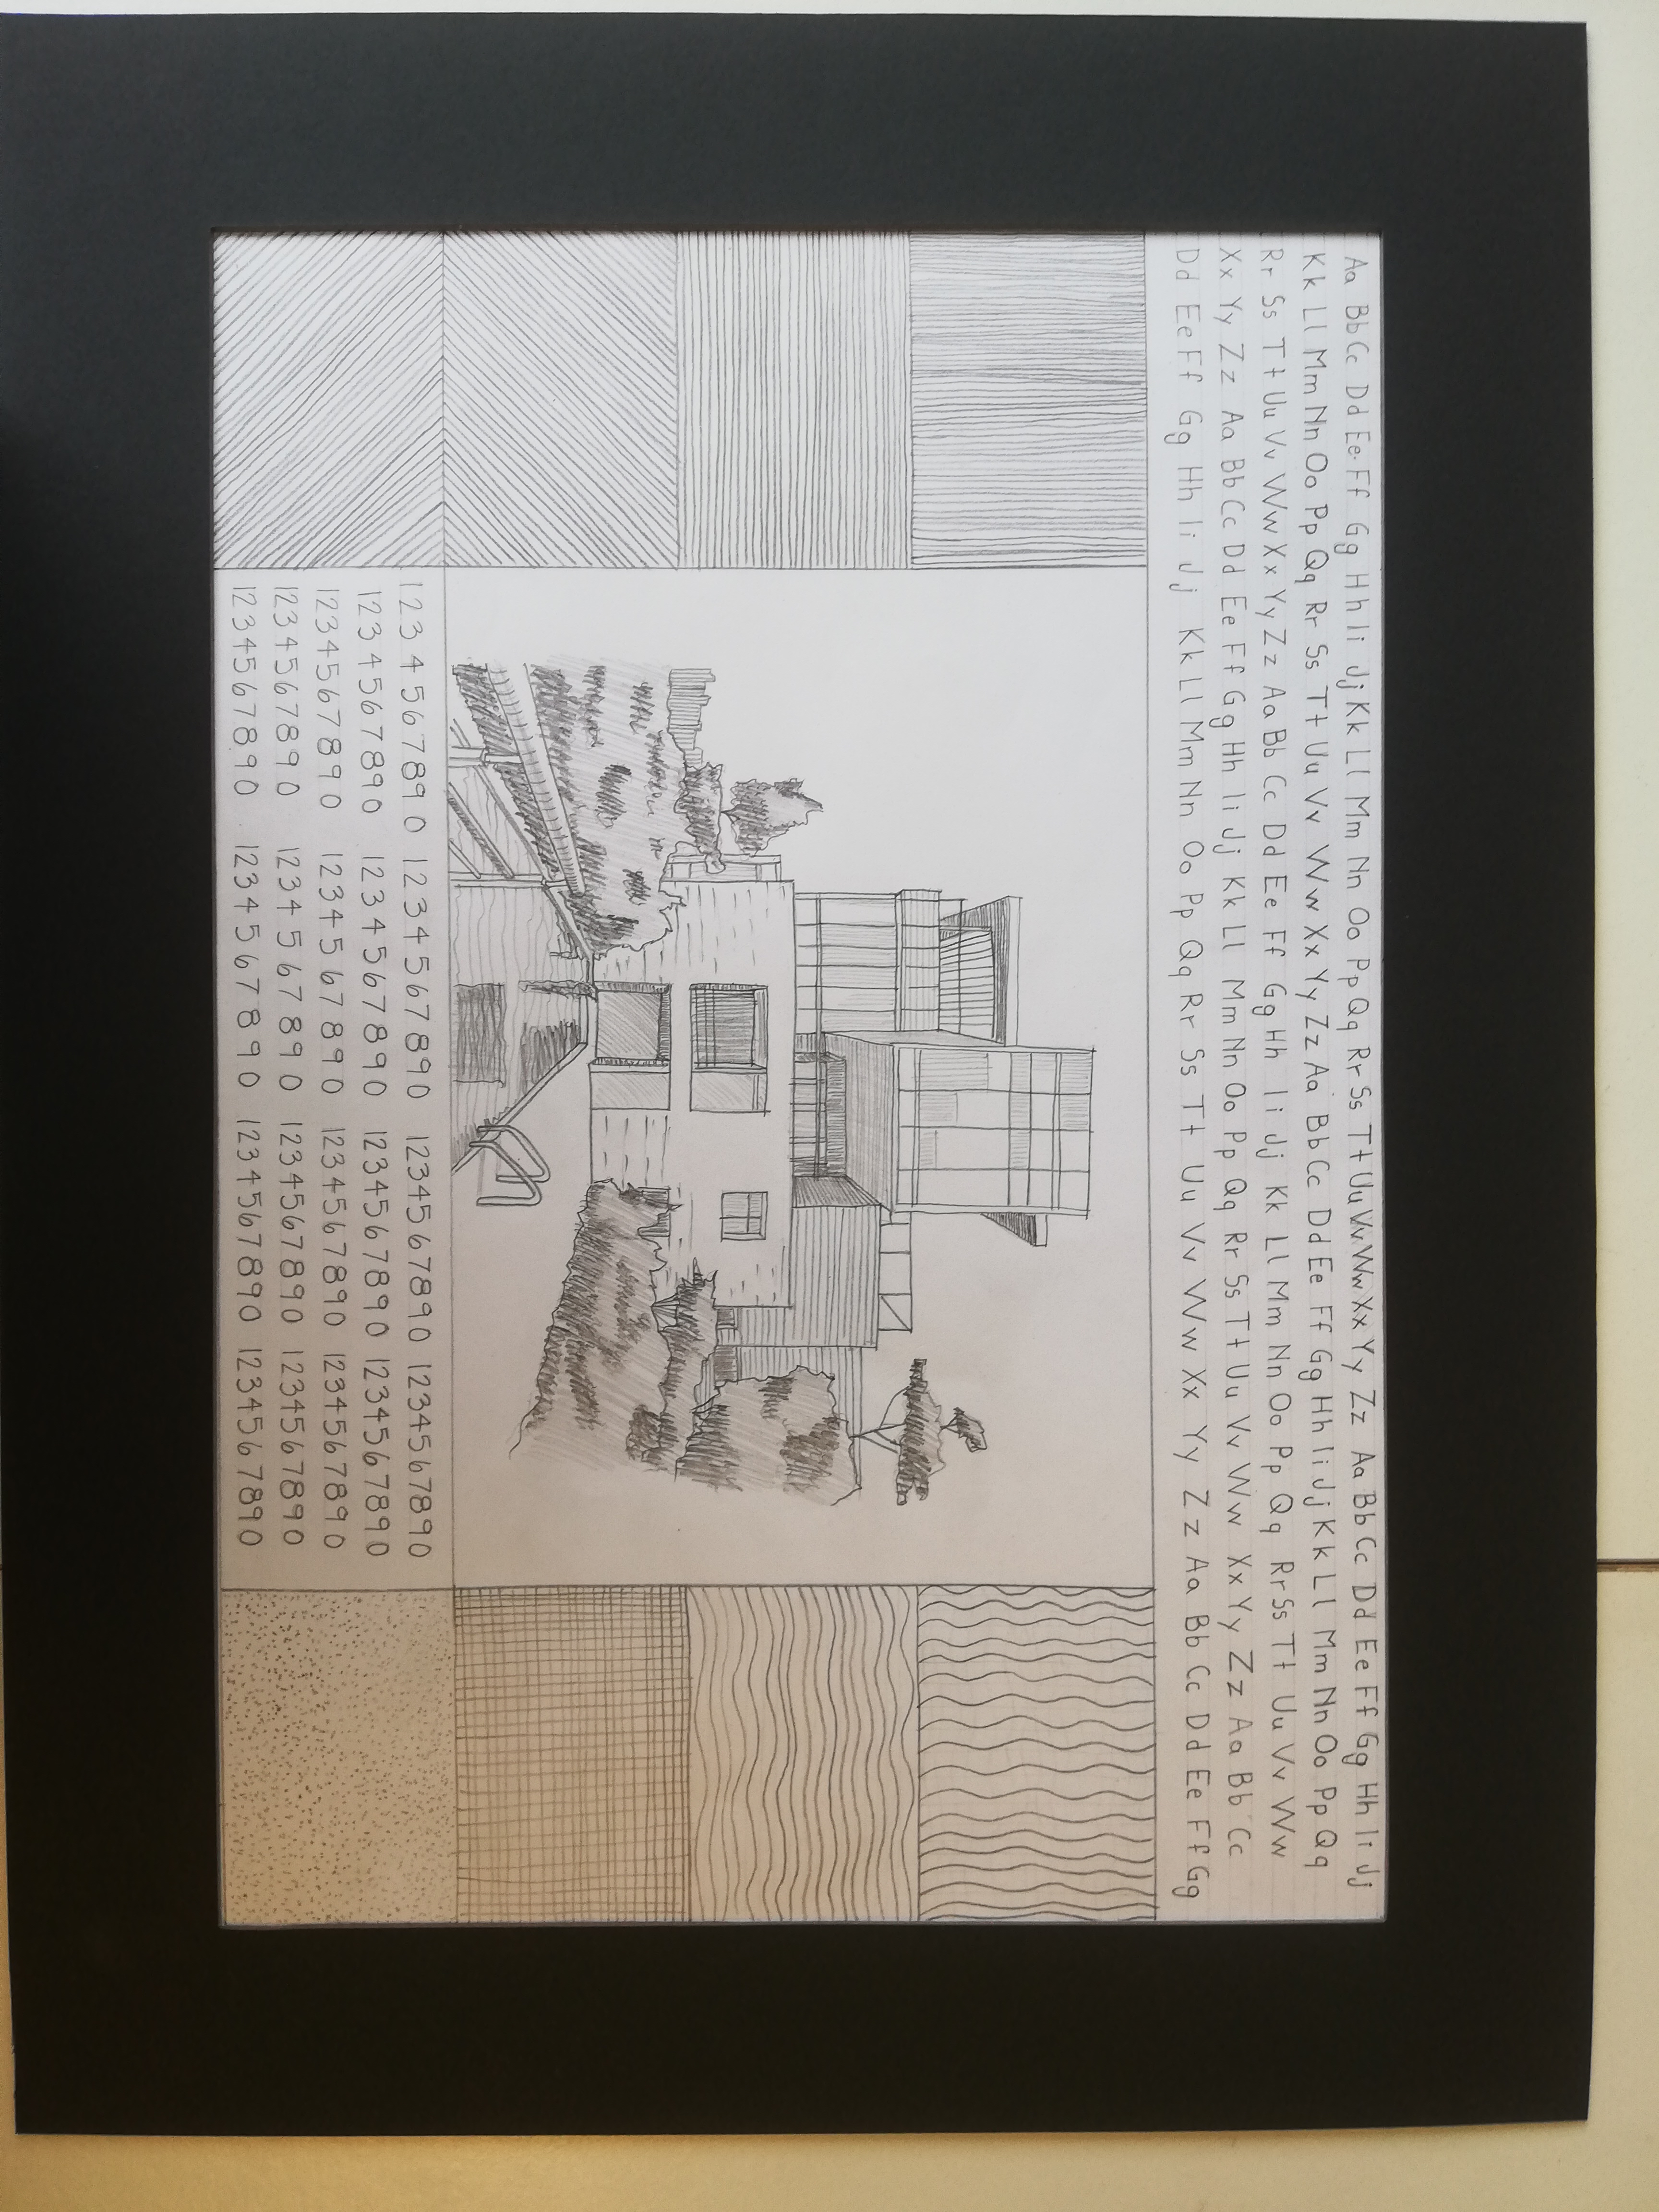 Aa Bb Cc Dd Ee Ff Gg Hh Ii Jj Kk Ll Mm Nn Oo Pp Qq Rr Ss Tt Uu Vv Ww Xx Yy Zz Aa Bb Cc Dd Ee Ff Gg Hh Ii Jj
Kk Ll Mm Nn Oo Pp Qq Rr Ss Tt Uu Vv Ww Xx Yy Zz Aa Bb Cc Dd Ee Ff Gg Hh Ii Jj Kk Ll Mm Nn Oo Pp Qq
Rr Ss Tt Uu Vv Ww Xx Yy Zz Aa Bb Cc Dd Ee Ff Gg Hh Ii Jj Kk Ll Mm Nn Oo Pp Qq Rr Ss Tt Uu Vv Ww
Xx Yy Zz Aa Bb Cc Dd Ee Ff Gg Hh Ii Jj Kk Ll Mm Nn Oo Pp Qq Rr Ss Tt Uu Vv Ww Xx Yy Zz Aa Bb Cc
Dd Ee Ff Gg Hh Ii Jj Kk Ll Mm Nn Oo Pp Qq Rr Ss Tt Uu Vv Ww Xx Yy Zz Aa Bb Cc Dd Ee Ff Gg
1234567890 1234567890 1234567890 1234567890
1234567890 1234567890 1234567890 1234567890
1234567890 1234567890 1234567890 1234567890
1234567890 1234567890 1234567890 1234567890
1234567890 1234567890 1234567890 1234567890